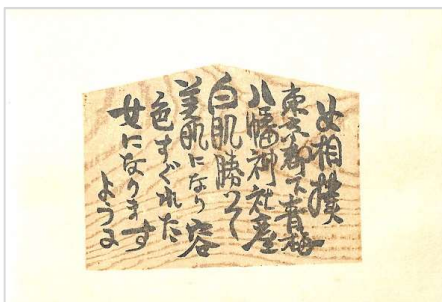 女相撲
東京都下青梅
八幡神社産
白肌勝つて
美肌になり容
色すぐれた
女になりますように